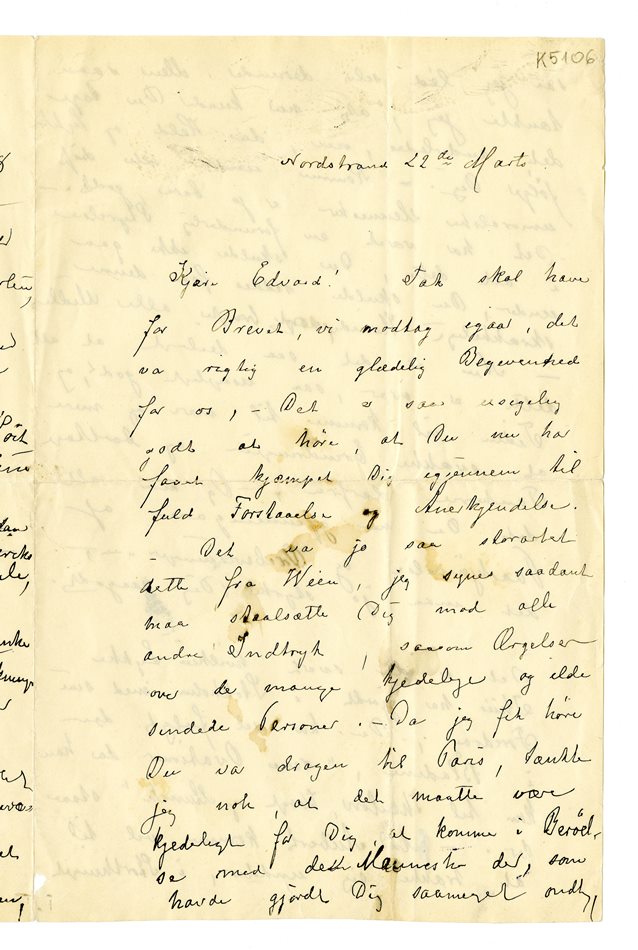 K5106
Nordstrand 22de Marts
Kjære Edvard! Tak skal have
for Brevet, vi modtog igaar, det
va rigtig en glædelig Begevenhed
for os, – Det e saa usigelig
godt at höre, at Du nu har
faaet kjæmpet Dig igjennem til
fuld Forstaaelse og Anerkjendelse.
– Det va jo saa storartet
dette fra Wien, jeg synes saadant
maa staalsætte Dig mod alle
andre Indtryk, saasom Ærgelser
over de mange kjedelige og ilde
sindede Personer. – Da jeg fik höre
Du var dragen til Paris, tænkte
jeg nok, at det maatte være
kjedeligt for Dig, at komme i Beröel-
se med dette Menneske der, som
havde gjördt Dig saameget ondt,